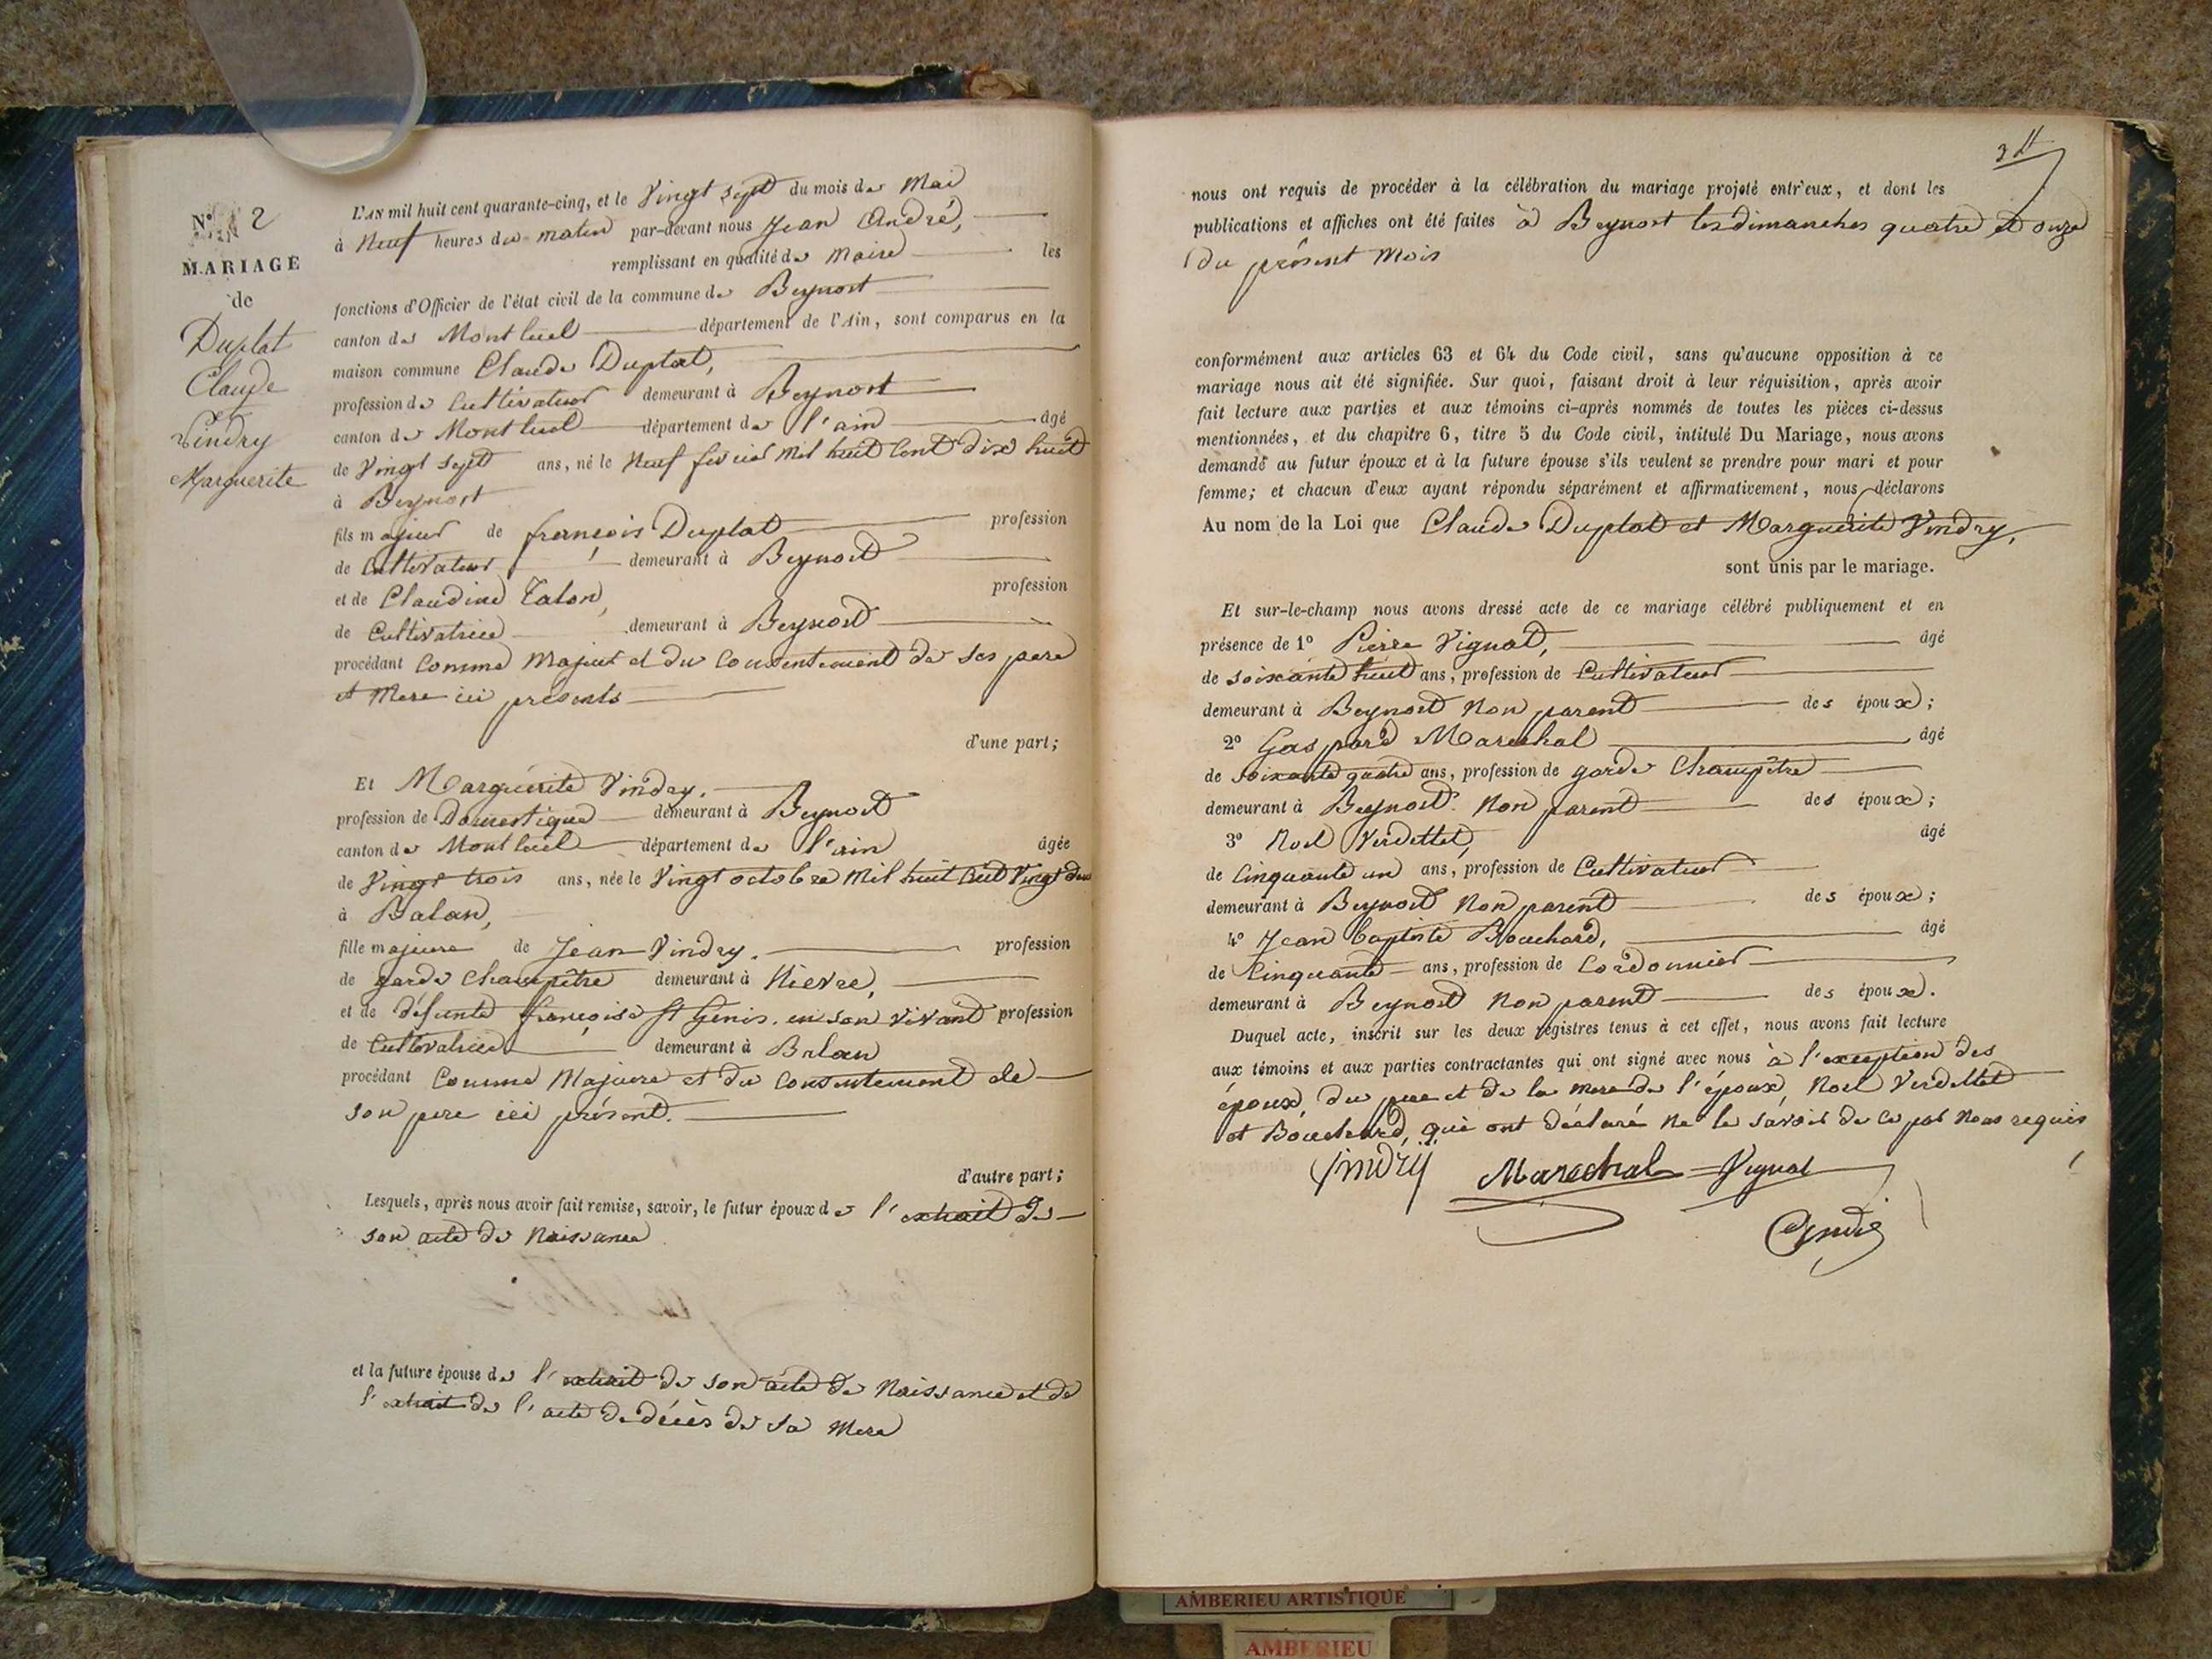 N° 2
MARIAGE
de
Duplat
Claude
Vindry
Marguerite
L'AN mil huit cent quarante-cinq, et le Vingt sept du mois de Mai
à Neuf heures du matin par-devant nous Jean André,
remplissant en qualité de Maire les
fonctions d'Officier de l'état civil de la commune de Beynost
canton de Montluel département de l'Ain, sont comparus en la
maison commune Claude Duplat,
profession de Cultivateur demeurant à Beynost
canton de Montluel département de l'ain âgé
de Vingt sept ans, né le Neuf fevrier Mil huit Cent dix huit
à Beynost
fils majeur de françois Duplat profession
de Cultivateur demeurant à Beynost
et de Claudine Talon, profession
de Cultivatrice demeurant à Beynost
procédant Comme Majeur et du Consentement de ses pere
et Mere ici presents
d'une part;
Et Marguérite Vindry.
profession de Domestique demeurant à Beynost
canton de Montluel département de l'ain âgée
de Vingt trois ans, née le Vingt octobre Mil huit Cent Vingt deux
à Balan,
fille majeure de Jean Vindry. profession
de garde Champêtre demeurant à Nievre,
et de défunte françoise St Genis. en son vivant profession
de Cultivatrice demeurant à Balan
procédant Comme Majeure et du Consentement de
son pere ici présent.
d'autre part;
Lesquels, après nous avoir fait remise, savoir, le futur époux de l'extrait de
son acte de Naissance
et la future épouse de l'extrait de son acte de Naissance et de
l'extrait de l'acte de décès de sa Mere
nous ont requis de procéder à la célébration du mariage projeté entr'eux, et dont les
publications et affiches ont été faites à Beynost les dimanches quatre et onze
du présent Mois
conformément aux articles 63 et 64 du Code civil, sans qu'aucune opposition à ce
mariage nous ait été signifiée. Sur quoi, faisant droit à leur réquisition, après avoir
fait lecture aux parties et aux témoins ci-après nommés de toutes les pièces ci-dessus
mentionnées, et du chapitre 6, titre 5 du Code civil, intitulé Du Mariage, nous avons
demandé au futur époux et à la future épouse s'ils veulent se prendre pour mari et pour
femme; et chacun d'eux ayant répondu séparément et affirmativement, nous déclarons
Au nom de la Loi que Claude Duplat et Marguerite Vindry,
sont unis par le mariage.
Et sur-le-champ nous avons dressé acte de ce mariage célébré publiquement et en
présence de 1° Pierre Vignat, âgé
de soixante huit ans, profession de Cultivateur
demeurant à Beynost Non parent des époux;
2° Gaspard Marechal âgé
de soixante quatre ans, profession de garde Champêtre
demeurant à Beynost. Non parent des époux;
3° Noel Verdettet, âgé
de Cinquante un ans, profession de Cultivateur
demeurant à Beynost Non parent des époux;
4° Jean Baptiste Bouchard, âgé
de Cinquante ans, profession de Cordonnier
demeurant à Beynost Non parent des époux.
Duquel acte, inscrit sur les deux registres tenus à cet effet, nous avons fait lecture
aux témoins et aux parties contractantes qui ont signé avec nous à l'exception des
époux, du pere et de la mere de l'époux, Noel Verdettet
et Bouchard, qui ont déclaré ne le savoir de ce par Nous requis
Vindry Marechal Vignat
André
AMBERIEU ARTISTIQUE
AMBERIEU